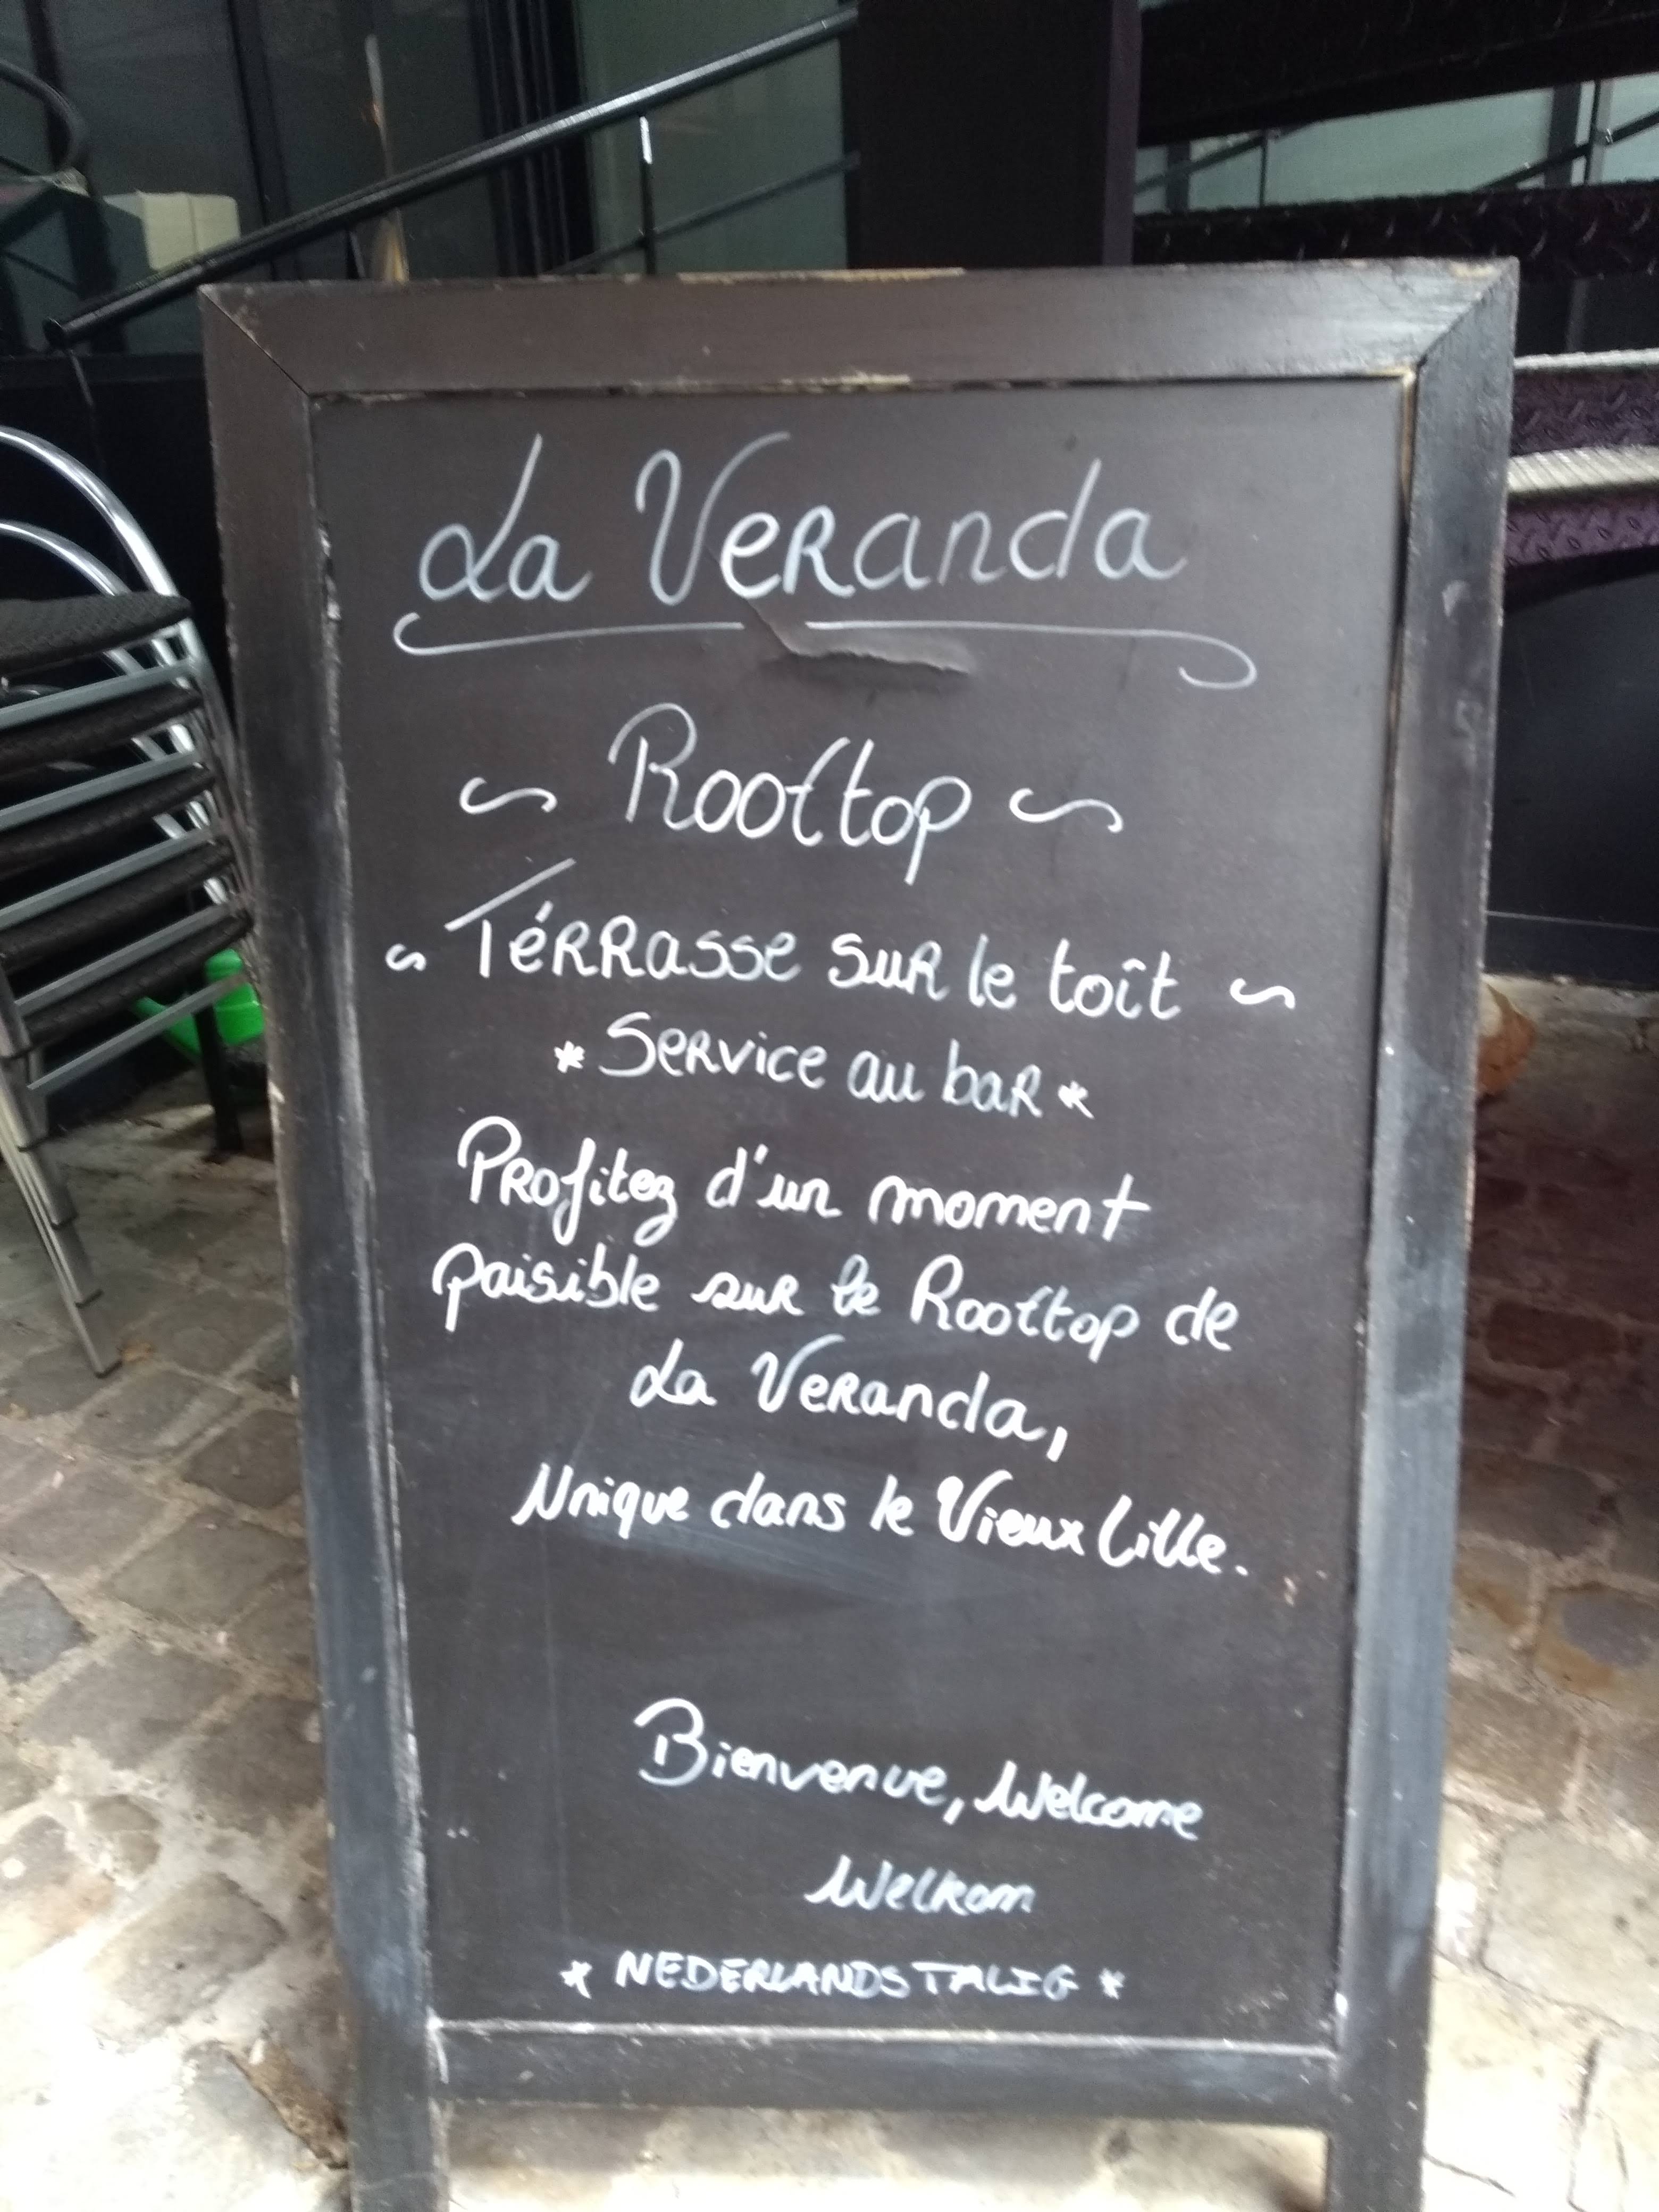 La Veranda
~ Rooftop ~
~ Térrasse sur le toît ~
* Service au bar *
Profitez d'un moment
paisible sur le Rooftop de
La Veranda,
Unique dans le Vieux Lille.
Bienvenue, Welcome
Welkom
* NEDERLANDSTALIG *